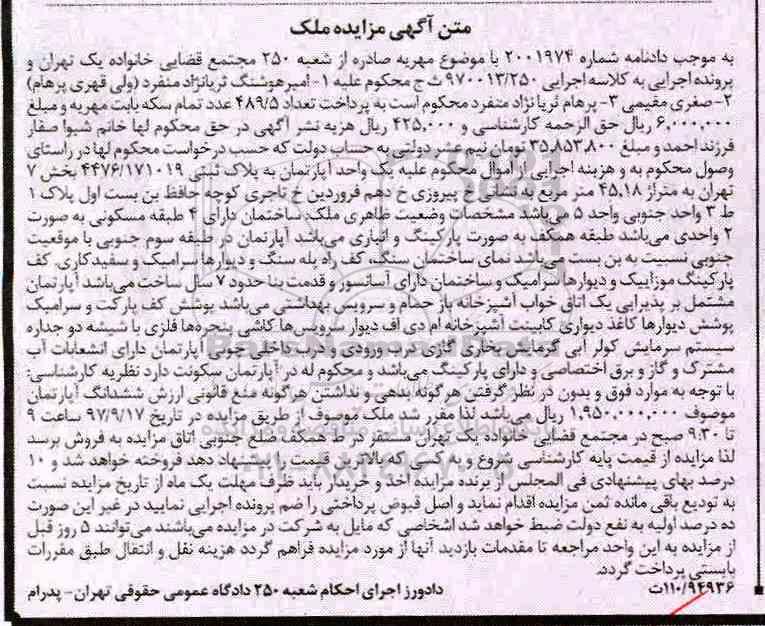 متن آگهی مزایده ملک
به موجب دادنامه شماره ۲۰۰۱۹۷۴ با موضوع مهریه صادره از شعبه ۲۵۰ مجتمع قضایی خانواده یک تهران و
پرونده اجرایی به کلاسه اجرایی ۹۷۰۰۱۳/۲۵۰ ث ج محکوم علیه ۱- امیرهوشنگ ثریانژاد منفرد (ولی قهری پرهام)
۲- صغری مقیمی ۳- پرهام ثریا نژاد منفرد محکوم است به پرداخت تعداد ۴۸۹/۵ عدد تمام سکه بابت مهریه و مبلغ
۶,۰۰۰,۰۰۰ ریال حق الزحمه کارشناسی و ۴۲۵,۰۰۰ ریال هزینه نشر آگهی در حق محکوم لها خانم شیوا صفار
فرزند احمد و مبلغ ۳۵,۸۵۳,۸۰۰ تومان نیم عشر دولتی به حساب دولت که حسب درخواست محکوم لها در راستای
وصول محکوم به و هزینه اجرایی از اموال محکوم علیه یک واحد آپارتمان به پلاک ثبتی ۴۴۷۶/۱۷۱۰۱۹ بخش ۷
تهران به متراژ ۴۵,۱۸ متر مربع به نشانی خ پیروزی خ دهم فروردین خ تاجری کوچه حافظ بن بست اول پلاک ۱
ط ۳ واحد جنوبی واحد ۵ می‌باشد مشخصات وضعیت ظاهری ملک: ساختمان دارای ۴ طبقه مسکونی به صورت
۲ واحدی می‌باشد طبقه همکف به صورت پارکینگ و انباری می‌باشد آپارتمان در طبقه سوم جنوبی با موقعیت
جنوبی نسبیت به بن بست می‌باشد نمای ساختمان سنگ، کف راه پله سنگ و دیوارها سرامیک و سفیدکاری، کف
پارکینگ موزاییک و دیوارها سرامیک و ساختمان دارای آسانسور و قدمت بنا حدود ۷ سال ساخت می‌باشد آپارتمان
مشتمل بر پذیرایی یک اتاق خواب آشپزخانه باز حمام و سرویس بهداشتی می‌باشد پوشش کف پارکت و سرامیک
پوشش دیوارها کاغذ دیواری کابینت آشپزخانه ام دی اف دیوار سرویس‌ها کاشی پنجره‌ها فلزی با شیشه دو جداره
سیستم سرمایش کولر آبی گرمایش بخاری گازی درب ورودی و درب داخلی چوبی آپارتمان دارای انشعابات آب
مشترک و گاز و برق اختصاصی و دارای پارکینگ می‌باشد و محکوم له در آپارتمان سکونت دارد نظریه کارشناسی:
با توجه به موارد فوق و بدون در نظر گرفتن هرگونه بدهی و نداشتن هرگونه منع قانونی ارزش ششدانگ آپارتمان
موصوف ۱,۹۵۰,۰۰۰,۰۰۰ ریال می‌باشد لذا مقرر شد ملک موصوف از طریق مزایده در تاریخ ۹۷/۹/۱۷ ساعت ۹
تا ۹:۳۰ صبح در مجتمع قضایی خانواده یک تهران مستقر در ط همکف ضلع جنوبی اتاق مزایده به فروش برسد
لذا مزایده از قیمت پایه کارشناسی شروع و به کسی که بالاترین قیمت را پیشنهاد دهد فروخته خواهد شد و ۱۰
درصد بهای پیشنهادی فی المجلس از برنده مزایده اخذ و خریدار باید ظرف مهلت یک ماه از تاریخ مزایده نسبت
به تودیع باقی مانده ثمن مزایده اقدام نماید و اصل قبوض پرداختی را ضم پرونده اجرایی نمایید در غیر این صورت
ده درصد اولیه به نفع دولت ضبط خواهد شد اشخاصی که مایل به شرکت در مزایده می‌باشند می‌توانند ۵ روز قبل
از مزایده به این واحد مراجعه تا مقدمات بازدید آنها از مورد مزایده فراهم گردد هزینه نقل و انتقال طبق مقررات
بایستی پرداخت گردد.
۱۱۰/۹۴۹۳۶ت دادورز اجرای احکام شعبه ۲۵۰ دادگاه عمومی حقوقی تهران - پدرام